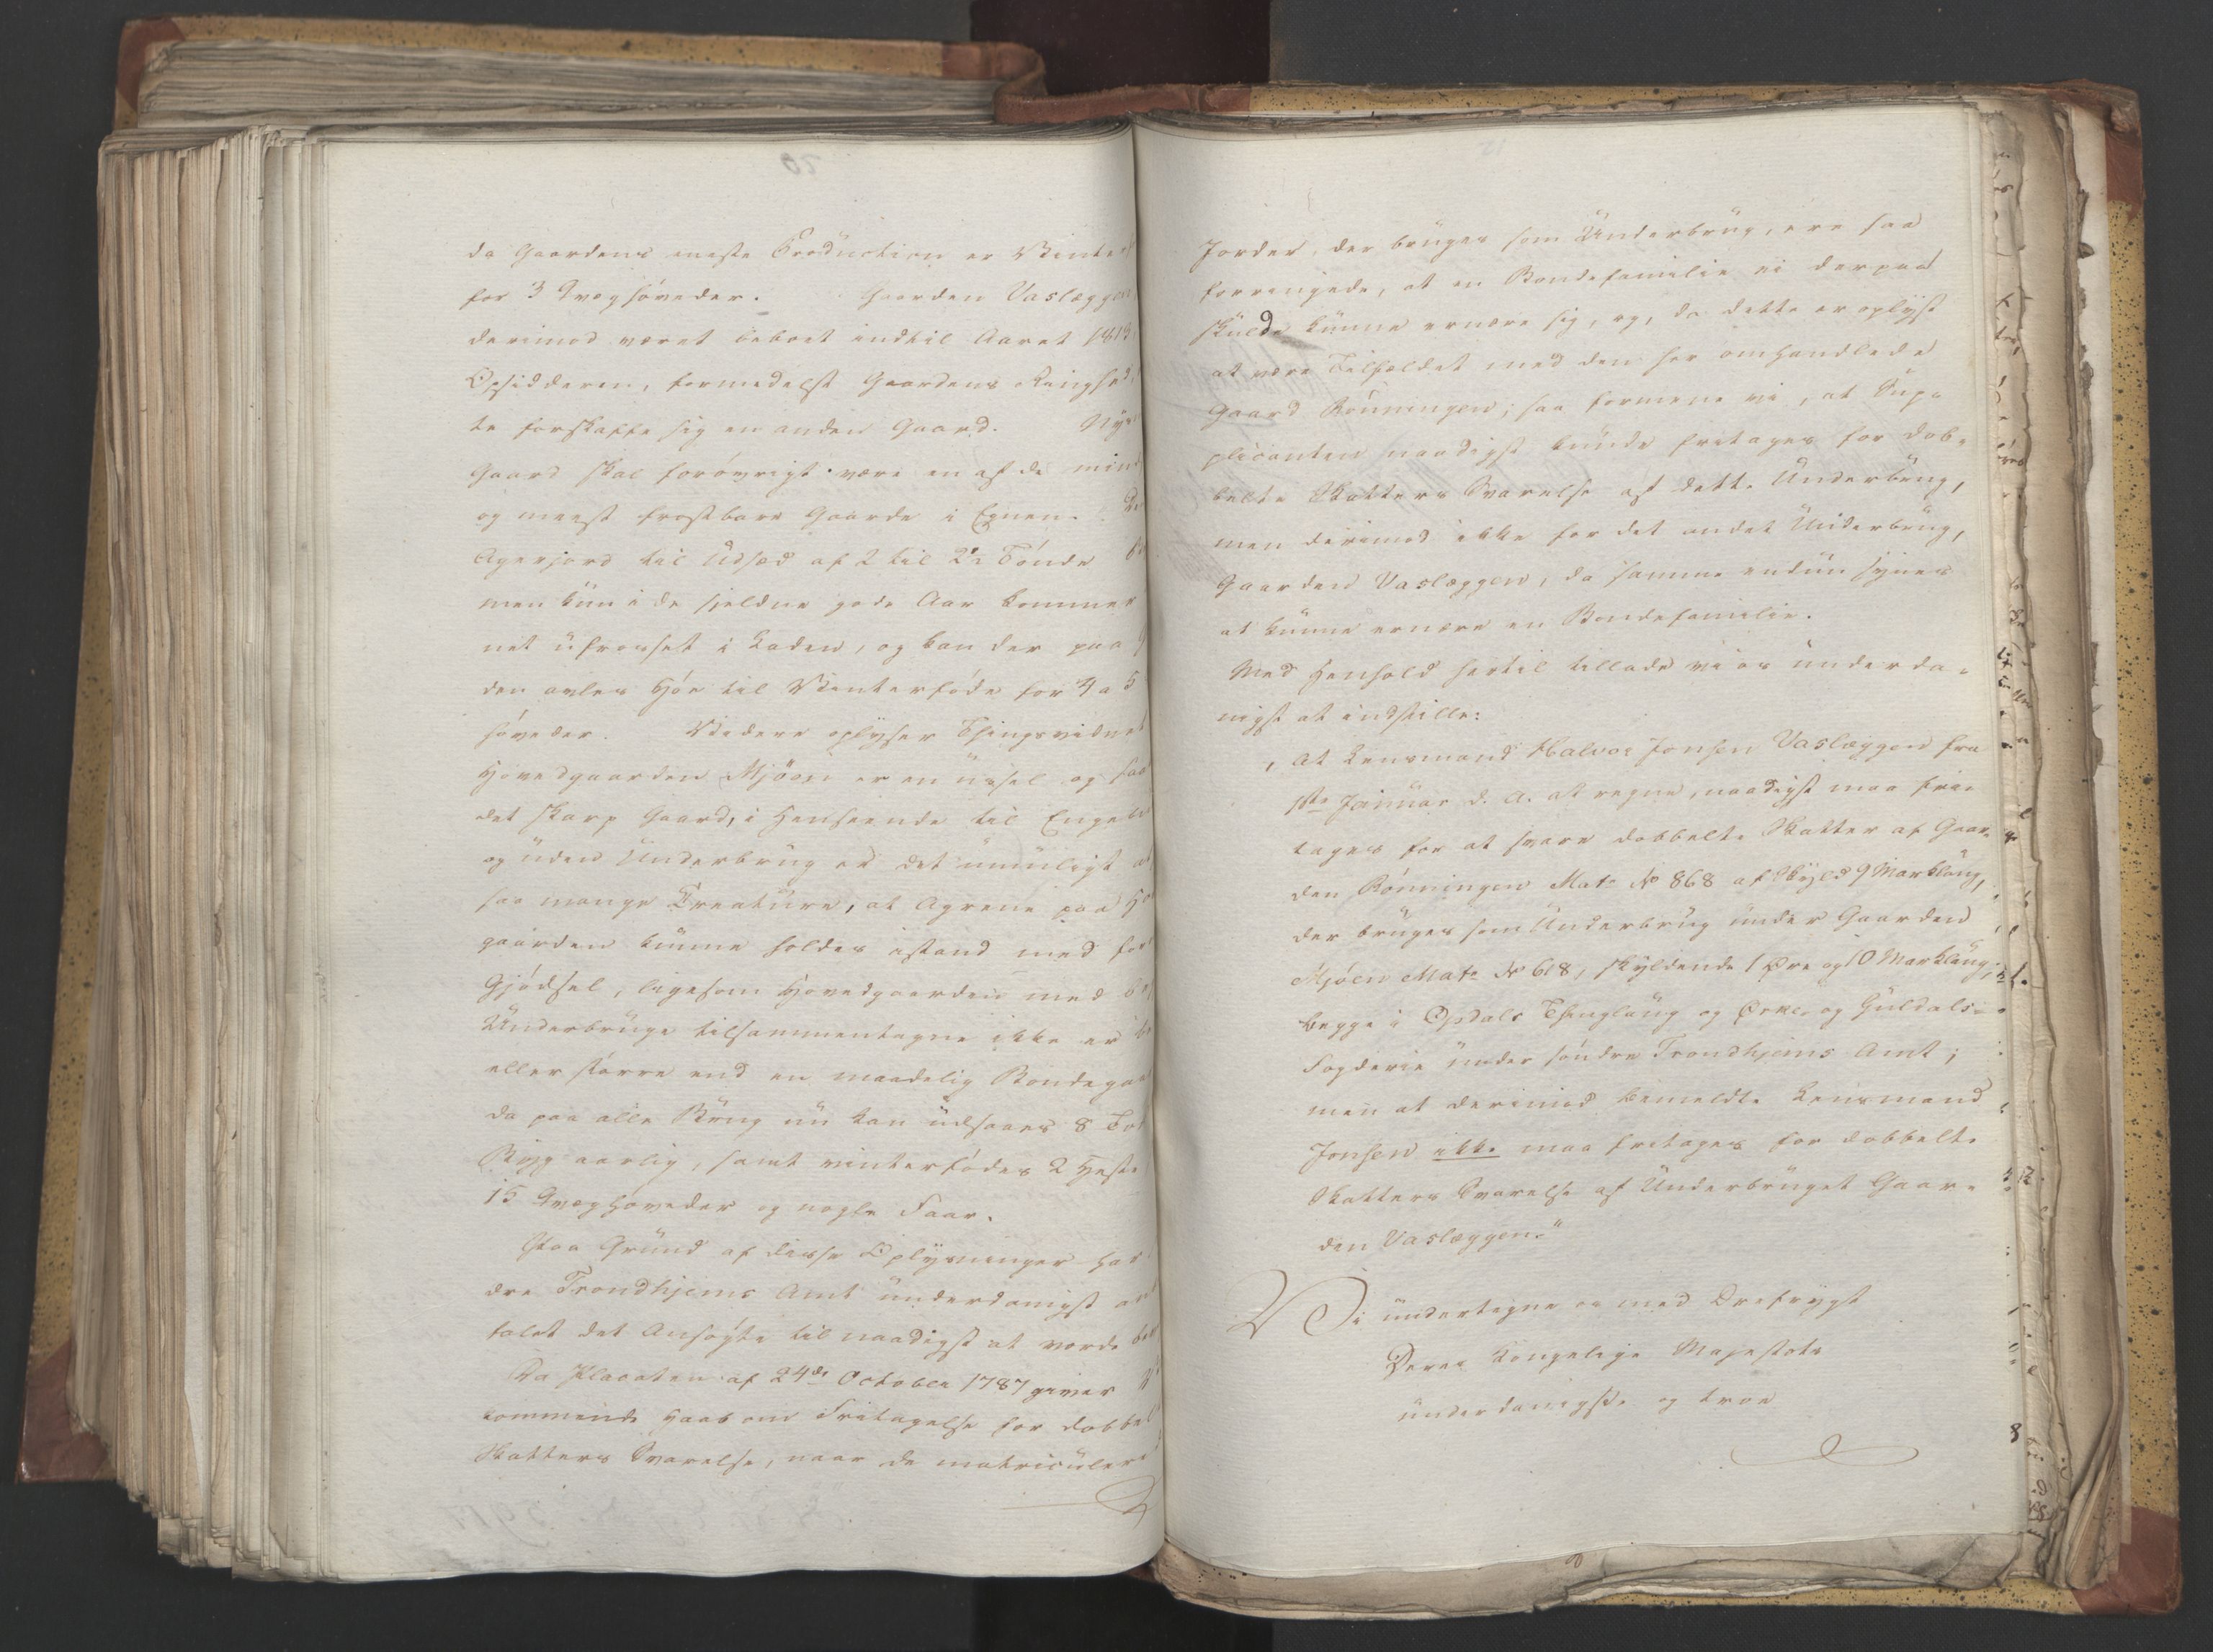 da Gaardens eneste Production er Vinter
for 3 Qvæghöveder. Gaarden Vaslæggen
derimod været beboet indtil Aaret 1813
Opsidderen, formedelst Gaardens Ringhed
te forskaffe sig en anden Gaard.
Gaard skal forövrigt være en af de mind
og meest frostbare Gaarde i Egnen.
Agerjord til Udsæd af 2 til 2½ Tönde
men kun i de sjeldne gode Aar kommer
net ufrosset i Laden, og kan der paa
den avles Höe til Vinterföde for 4 a 5
höveder. Videre oplyser Thingsvidnet
Hovedgaarden Mjöen er en ussel og
det skarp Gaard, i Henseende til
og uden Underbrug er det umuligt at
saa mange Creature, at Agrene paa Ho
gaarden kunne holdes istand med for
Gjödsel, ligesom Hovedgaarden med
Underbruge tilsammentagne ikke er
eller större end en maadelig Bondegaa
da paa alle Brug nu kan udsaaes 8
Byg aarlig, samt vinterfödes 2 Heste
15 Qvæghöveder og nogle Faar.
Paa Grund af disse Oplysninger har
dre Trondhjems Amt underdanigst
falet det Ansøgte til naadigst at vorde
Da Placaten af 24de October 1787 giver
kommende Haab om Fritagelse for dobbel
Skatters Svarelse, naar de matriculere
Jorder, der bruges som Underbrug, ere saa
forringede, at en Bondefamilie ei derpaa
skulde kunne ernære sig, og, da dette er oplyst
at være Tilfældet med den her omhandlede
Gaard Rönningen; saa formene vi, at Sup-
plicanten naadigst kunde fritages for dob-
belte Skatters Svarelse af dette Underbrug,
men derimod ikke for det andet Underbrug,
Gaarden Vaslæggen, da samme endnu synes
at kunne ernære en Bondefamilie.
Med Henhold hertil tillade vi os underda-
nigst at indstille:
„At Lensmand Halvor Jonsen Vaslæggen fra
1ste Januar d. A. at regne, naadigst maa fri-
tages for at svare dobbelte Skatter af Gaar-
den Rönningen Matr No 868 af Skyld 9 Marklaug,
der bruges som Underbrug under Gaarden
Mjöen Matr No 618, skyldende 1 Øre og 10 Marklaug,
begge i Opdals Thinglaug og Orke- og Guldals-
Fogderie under söndre Trondhjems Amt;
men at derimod bemeldte Lensmand
Jonsen ikke maa fritages for dobbelte
Skatters Svarelse af Underbruget Gaar-
den Vaslæggen.“
Vi undertegne os med Ærefrygt
Deres Kongelige Majestæts
underdanigste og troe